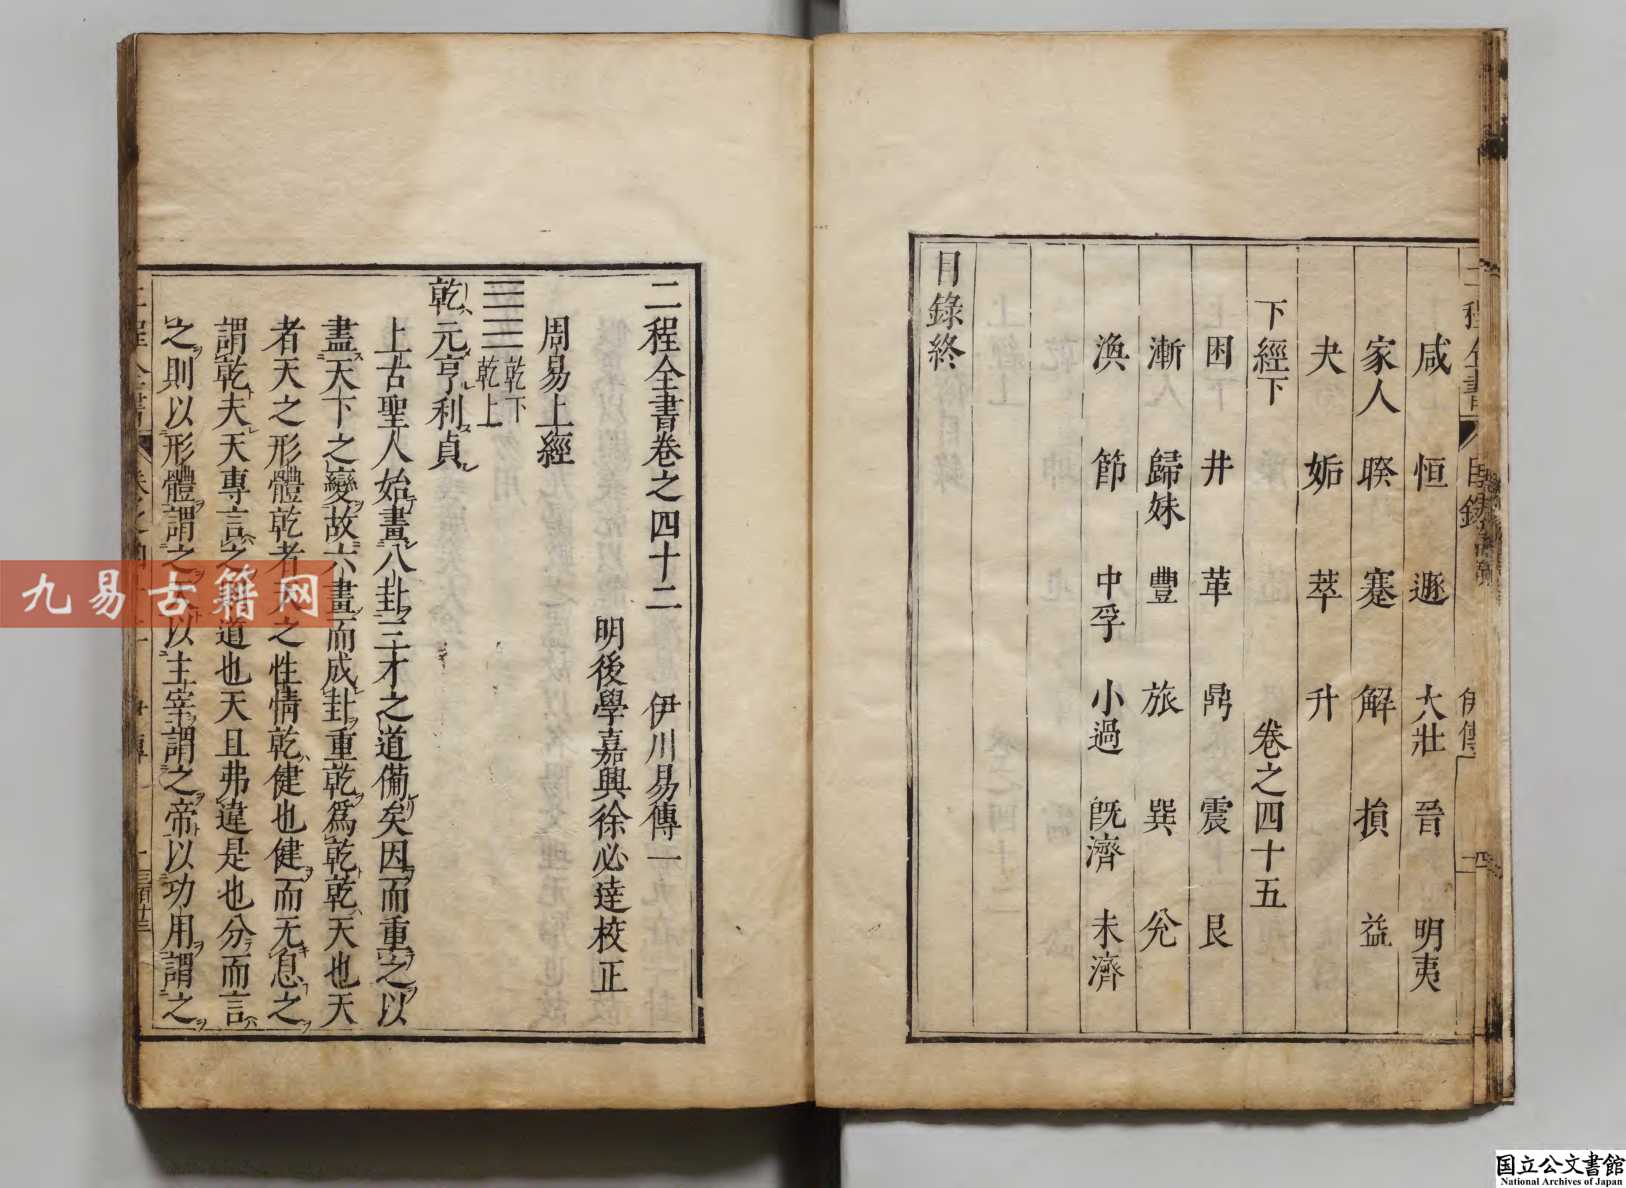 咸 恒 遯 大壯 晉 明夷
家人 睽 蹇 解 損 益
夬 姤 萃 升
下經下 卷之四十五
困 井 革 鼎 震 艮
漸 歸妹 豐 旅 巽 兊
渙 節 中孚 小過 旣濟 未濟
目錄終
二程全書卷之四十二 伊川易傳一
明後學嘉興徐必達校正
周易上經
乾下
乾上
乾元亨利貞
上古聖人始畫八卦三才之道備矣因而重之以
盡天下之變故六畫而成卦重乾爲乾乾天也天
者天之形體乾者天之性情乾健也健而无息之
謂乾夫天專言之則道也天且弗違是也分而言
之則以形體謂之天以主宰謂之帝以功用謂之
九易古籍网
国立公文書館
National Archives of Japan